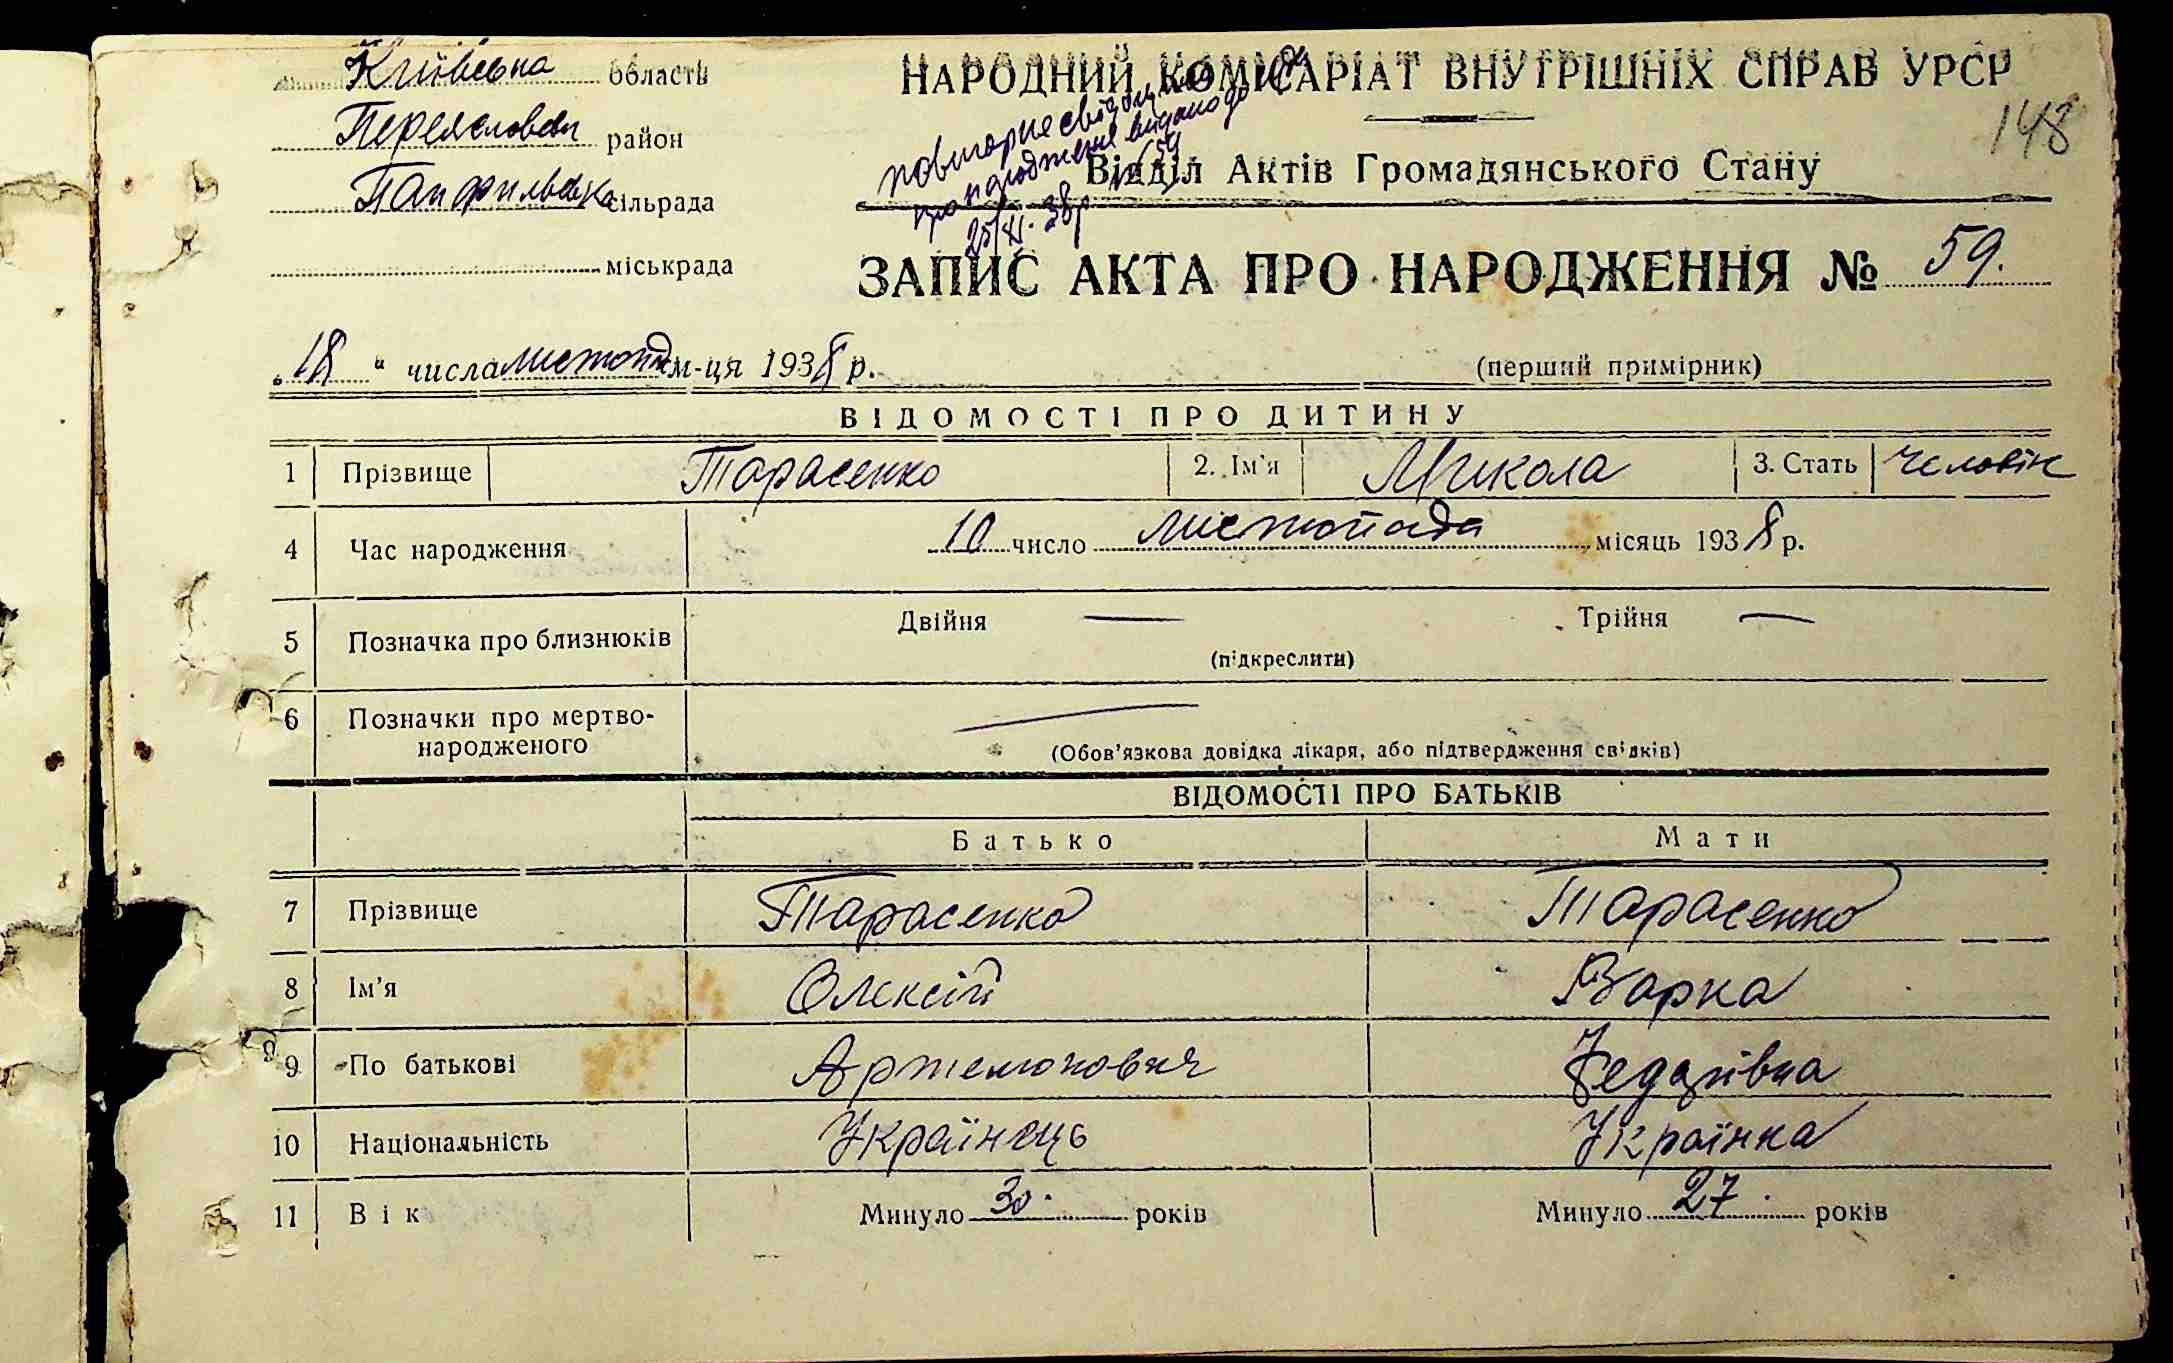 Київська область
НАРОДНИЙ КОМІСАРІАТ ВНУТРІШНІХ СПРАВ УРСР
148
район
повторне
про народження видано
25/XI. 38р
Відділ Актів Громадянського Стану
Панфильська сільрада
міськрада
ЗАПИС АКТА ПРО НАРОДЖЕННЯ № 59.
„18“ числа листопад м-ця 1938 р.
(перший примірник)
ВІДОМОСТІ ПРО ДИТИНУ
1 Прізвище Тарасенко 2. Ім'я Микола 3. Стать Человік
4 Час народження 10 число листопада місяць 1938 р.
5 Позначка про близнюків Двійня — Трійня —
(підкреслити)
6 Позначки про мертво-
народженого —
(Обов'язкова довідка лікаря, або підтвердження свідків)
ВІДОМОСТІ ПРО БАТЬКІВ
Батько Мати
7 Прізвище Тарасенко Тарасенко
8 Ім'я Олексій Варка
9 По батькові Артемонович
10 Національність Українець Українка
11 Вік Минуло 30. років Минуло 27. років